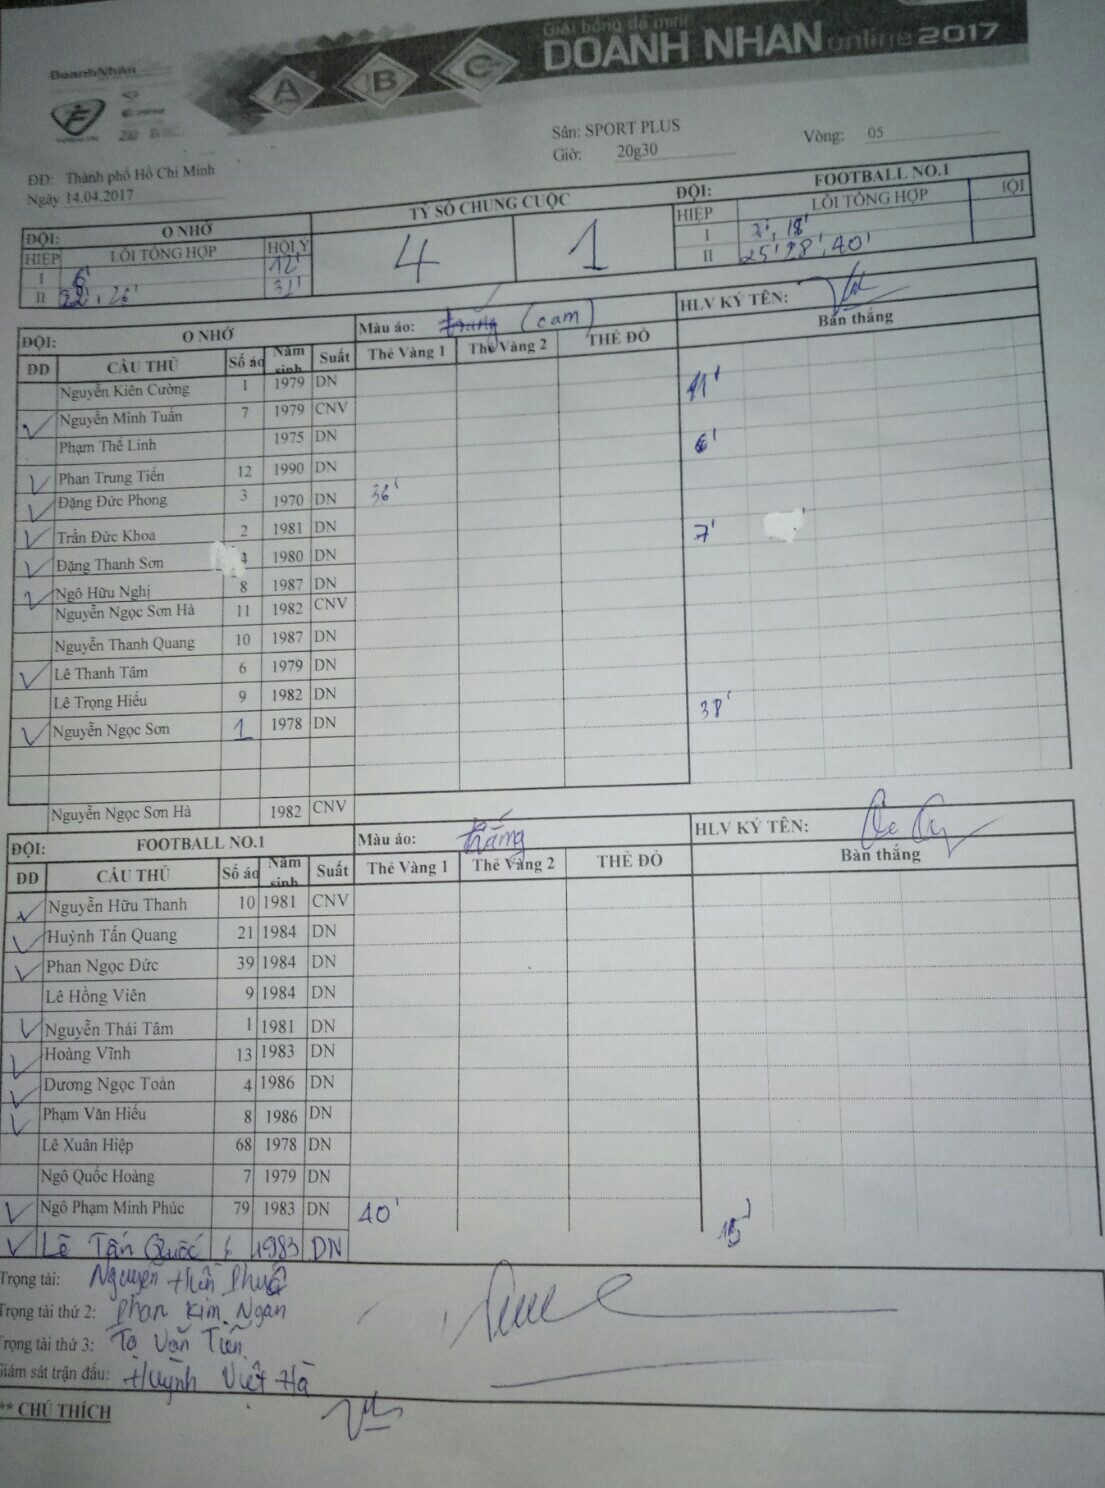 Giải bóng đá mini
DOANH NHAN online 2017
A B C
DoanhNhân
Sân: SPORT PLUS
Giờ: 20g30
Vòng: 05
ĐĐ: Thành phố Hồ Chí Minh
Ngày 14.04.2017
ĐỘI: O NHỚ TỶ SỐ CHUNG CUỘC ĐỘI: FOOTBALL NO.1
HIỆP LỖI TỔNG HỢP HỘI Ý 4 1 HIỆP LỖI TỔNG HỢP
I 6' 12' I 7', 18'
II 22', 26' 32' II 25' 28', 40'
ĐỘI: O NHỚ Màu áo: (cam) HLV KÝ TÊN:
ĐD CẦU THỦ Số áo Năm sinh Suất Thẻ Vàng 1 Thẻ Vàng 2 THẺ ĐỎ Bàn thắng
Nguyễn Kiên Cường 1 1979 DN
Nguyễn Minh Tuấn 7 1979 CNV 11'
Phạm Thế Linh 1975 DN
Phan Trung Tiến 12 1990 DN 6'
Đặng Đức Phong 3 1970 DN 36'
Trần Đức Khoa 2 1981 DN
Đặng Thanh Sơn 4 1980 DN 7'
Ngô Hữu Nghị 8 1987 DN
Nguyễn Ngọc Sơn Hà 11 1982 CNV
Nguyễn Thanh Quang 10 1987 DN
Lê Thanh Tâm 6 1979 DN
Lê Trọng Hiếu 9 1982 DN
Nguyễn Ngọc Sơn 1 1978 DN 38'
Nguyễn Ngọc Sơn Hà 1982 CNV
ĐỘI: FOOTBALL NO.1 Màu áo: trắng HLV KÝ TÊN:
ĐD CẦU THỦ Số áo Năm sinh Suất Thẻ Vàng 1 Thẻ Vàng 2 THẺ ĐỎ Bàn thắng
Nguyễn Hữu Thanh 10 1981 CNV
Huỳnh Tấn Quang 21 1984 DN
Phan Ngọc Đức 39 1984 DN
Lê Hồng Viên 9 1984 DN
Nguyễn Thái Tâm 1 1981 DN
Hoàng Vĩnh 13 1983 DN
Dương Ngọc Toản 4 1986 DN
Phạm Văn Hiếu 8 1986 DN
Lê Xuân Hiệp 68 1978 DN
Ngô Quốc Hoàng 7 1979 DN
Ngô Phạm Minh Phúc 79 1983 DN 40'
Lê Tấn Quốc 1983 DN
Trọng tài: Nguyễn
Trọng tài thứ 2: Phan Kim Ngân
Trọng tài thứ 3: Tạ Văn Tiến
Giám sát trận đấu: Huỳnh Việt Hà
** CHÚ THÍCH